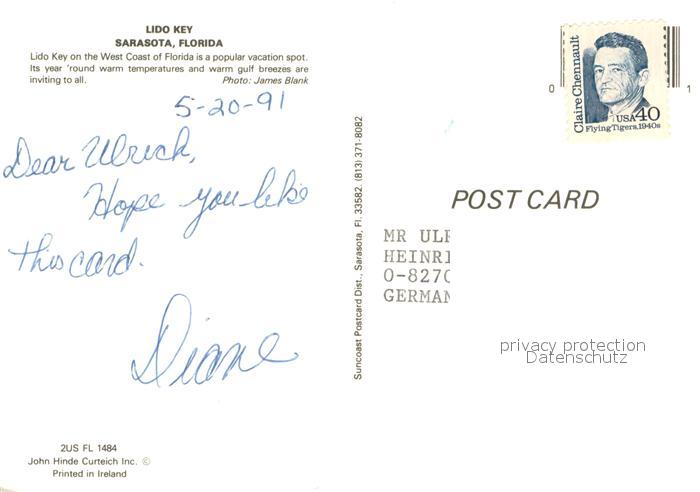 LIDO KEY
SARASOTA, FLORIDA
Lido Key on the West Coast of Florida is a popular vacation spot.
Its year 'round warm temperatures and warm gulf breezes are
inviting to all. Photo: James Blank
5-20-91
Dear Ulrich,
Hope you like
this card.
Diane
2US FL 1484
John Hinde Curteich Inc. ©
Printed in Ireland
Suncoast Postcard Dist., Sarasota, Fl. 33582. (813) 371-8082
Claire Chennault
USA 40
Flying Tigers, 1940s
0 1
POST CARD
MR ULR
HEINRI
O-8270
GERMAN
privacy protection
Datenschutz